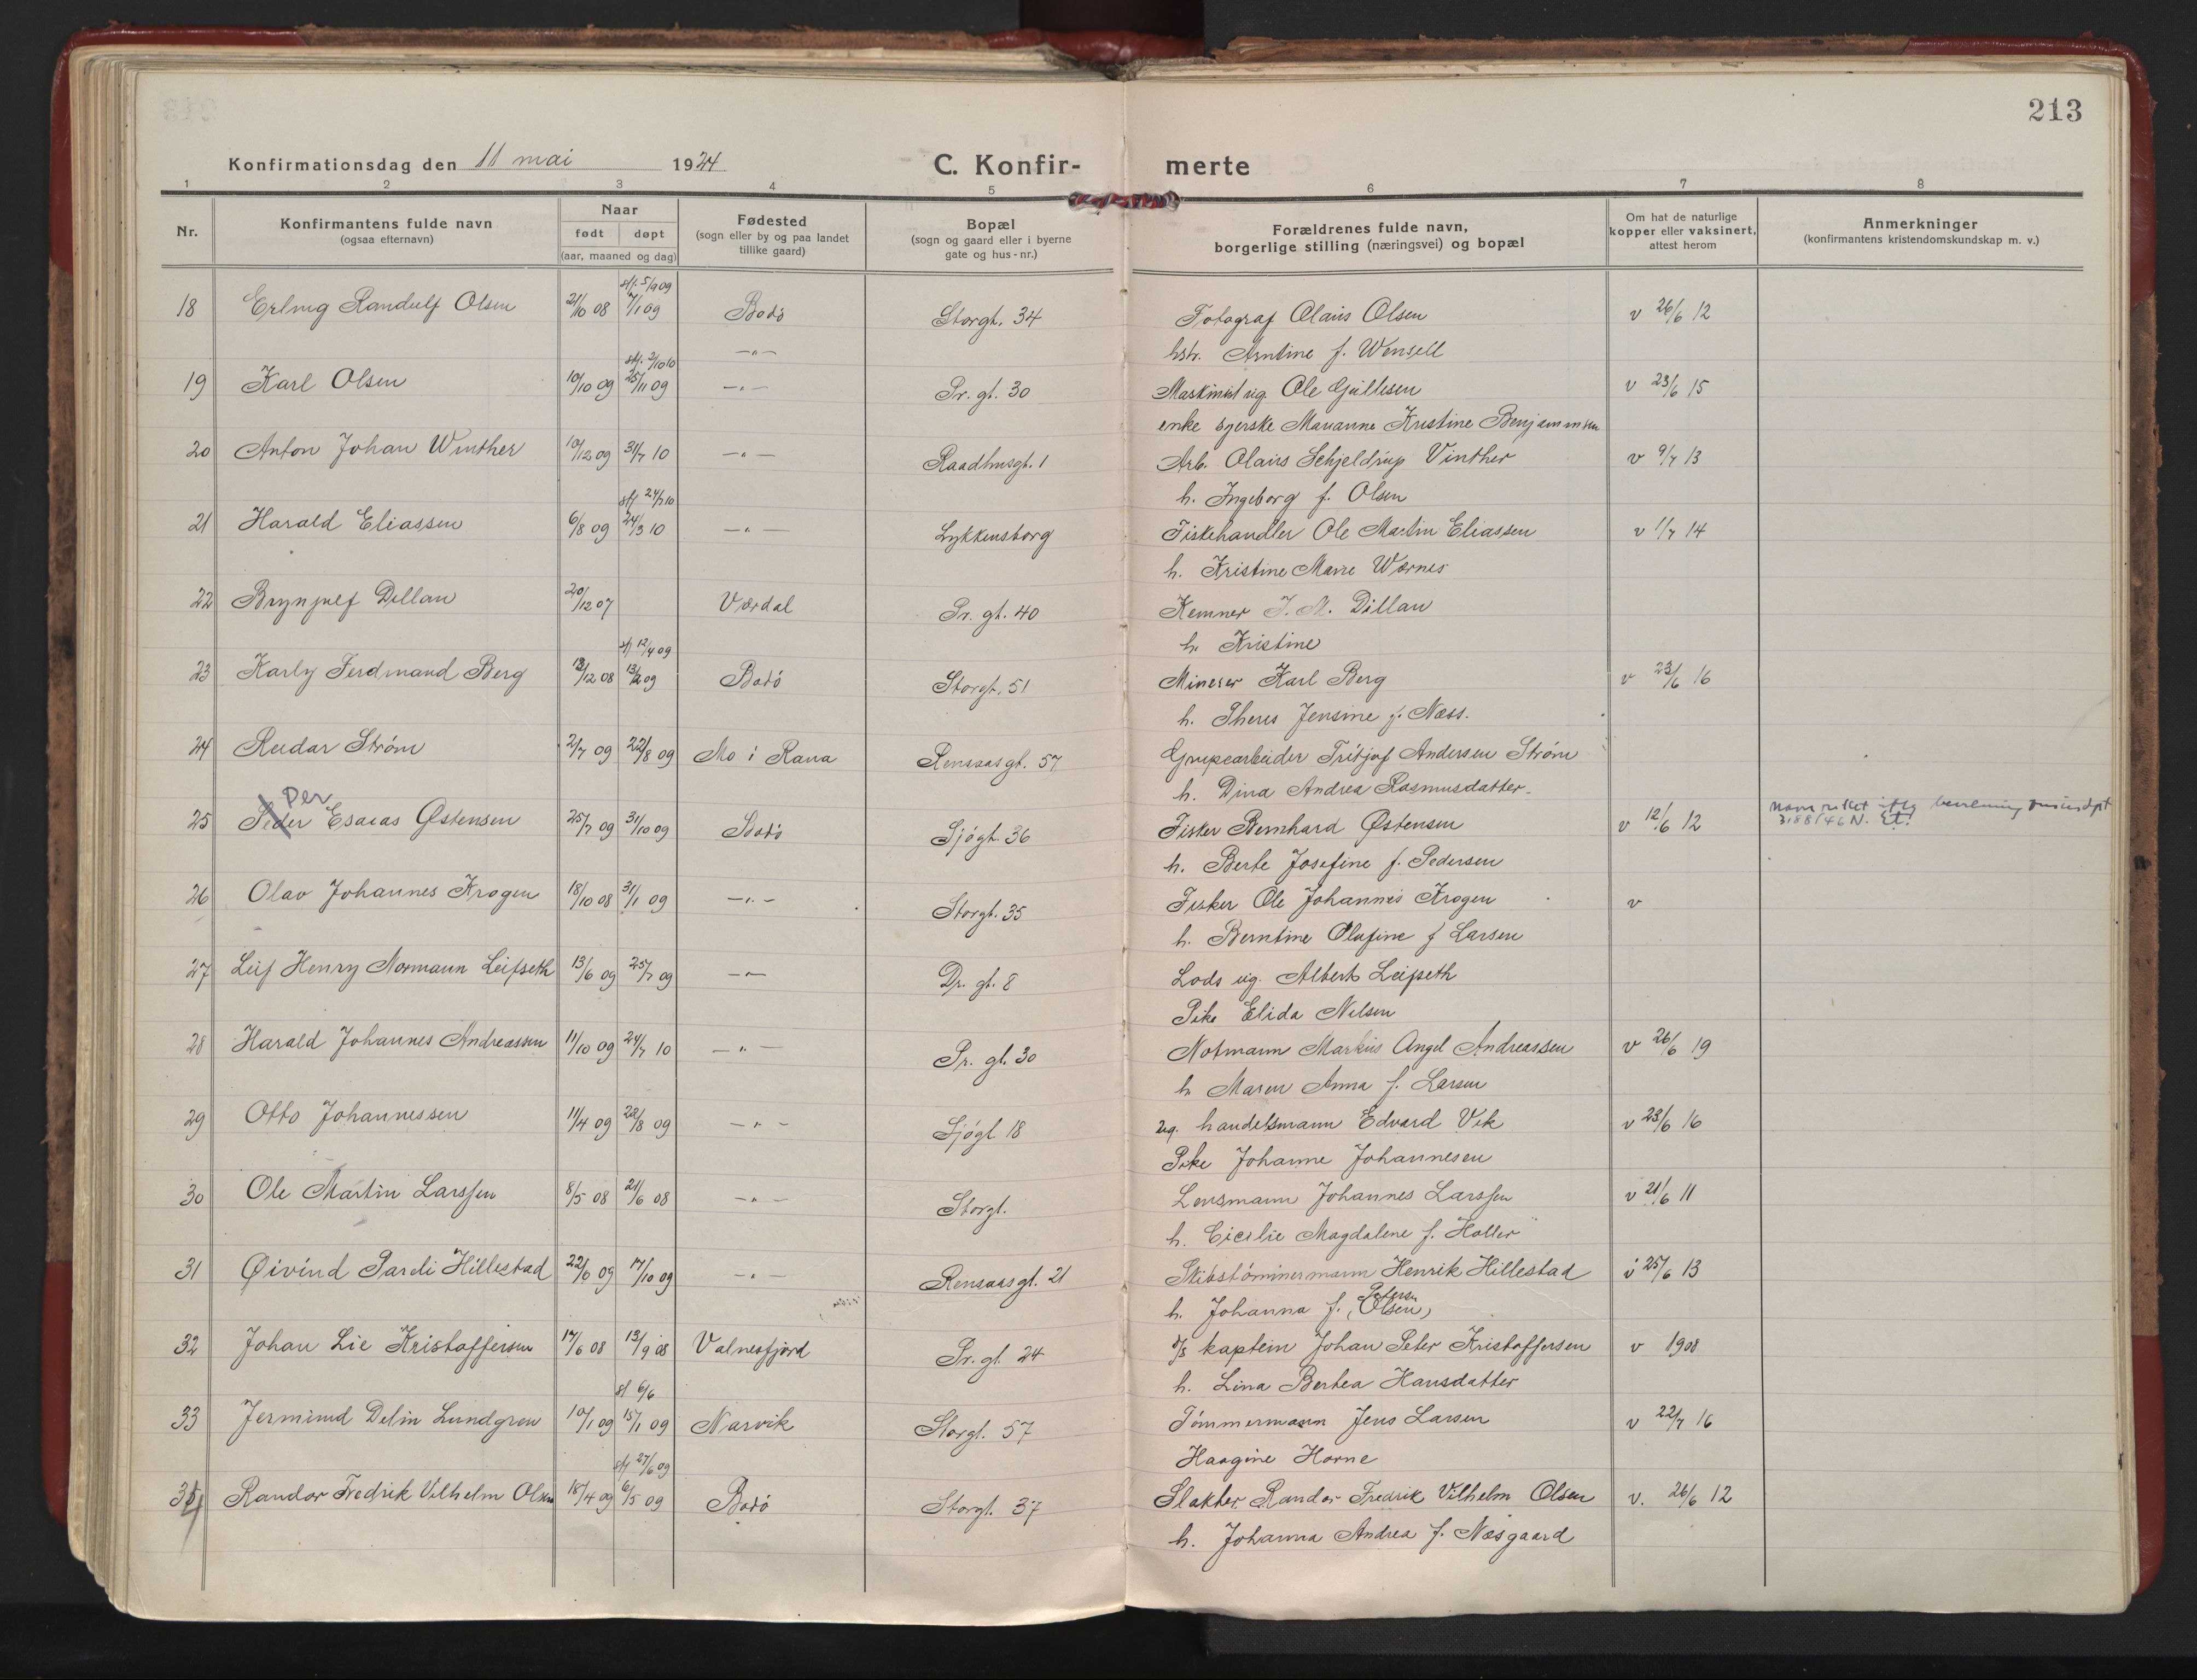 213
Konfirmationsdag den 11 mai 1924 C. Konfir- merte
1 2 3 4 5 6 7 8
Nr. Konfirmantens fulde navn (ogsaa efternavn) Naar født døpt (aar, maaned og dag) Fødested (sogn eller by og paa landet tillike gaard) Bopæl (sogn og gaard eller i byerne gate og hus-nr.) Forældrenes fulde navn, borgerlige stilling (næringsvei) og bopæl Om hat de naturlige kopper eller vaksinert, attest herom Anmerkninger (konfirmantens kristendomskundskap m. v.)
stf. 5/9 09
18 Erling Randulf Olsen 21/10 08 7/1 09 Bodö Storgt. 34 Fotograf Olaus Olsen v 26/6 12
—"— hstr. Arntine f. Wensell
stf. 2/10 10
19 Karl Olsen 10/10 09 25/11 09 —"— Pr. gt. 30 Maskinist ug. Ole Gjillesen v 23/6 15
enke syerske Marianne Kristine Benjaminsen
20 Anton Johan Winther 10/12 09 31/7 10 —"— Raadhusgt. 1 Arb. Olaus Schjeldrup Vinther v 9/7 13
h. Ingeborg f. Olsen
stf 24/7 10
21 Harald Eliassen 6/8 09 24/3 10 —"— Lykkensborg Fiskehandler Ole Martin Eliassen v 1/7 14
h. Kristine Marie Wærnes
22 Brynjulf Dillan 20/12 07 Værdal Pr. gt. 40 Kemner J. M. Dillan
h. Kristine
stf 12/4 09
23 Karly Ferdinand Berg 13/12 08 13/2 09 Bodö Storgt. 51 Minerer Karl Berg v 23/6 16
h. Theres Jensine f. Næss.
24 Reidar Ström 2/7 09 22/8 09 Mo i Rana Rensaasgt. 57 Grupearbeider Fritjof Andersen Ström
h. Dina Andrea Rasmusdatter.
Per
25 Peder Esaias Østensen 25/7 09 31/10 09 Bodö Sjögt. 36 Fisker Bernhard Østensen v 12/6 12 3188/46 N.
h. Berte Josefine f. Pedersen
26 Olav Johannes Krogen 18/10 08 31/1 09 —"— Storgt. 35 Fisker Ole Johannes Krogen v
h. Berntine Olufine f Larsen
27 Leif Henry Normann Leifseth 13/6 09 25/7 09 —"— Dr. gt. 8 Lods ug. Albert Leifseth
Pike Elida Nilsen
28 Harald Johannes Andreassen 11/10 09 24/7 10 —"— Pr. gt. 30 Notmann Markus Angel Andreassen v 26/6 19
h Maren Anna f. Larsen
29 Otto Johannessen 11/4 09 22/8 09 —"— Sjögt 18 ug. handelsmann Edvard Vik v 23/6 16
Pike Johanne Johannesen
30 Ole Martin Larssen 8/5 08 21/6 08 —"— Storgt. Lensmann Johannes Larssen v 21/6 11
h. Cicilie Magdalene f. Holler
31 Øivind Pareli Hillestad 22/6 09 17/10 09 —"— Rensaasgt. 21 Skibstömmermann Henrik Hillestad v 25/6 13
h. Johanna f. (Olsen) Petersen
32 Johan Lie Kristoffersen 17/6 08 13/9 08 Valnesfjord Pr. gt. 24 d/s kaptein Johan Peter Kristoffersen v 1908
h. Lina Bertea Hansdatter
stf 6/6
33 Jermund Delin Lundgren 10/1 09 15/1 09 Narvik Storgt. 57 Tömmermann Jens Larsen v 22/7 16
Haagine Horne
stf 27/6 09
34 Randor Fredrik Vilhelm Olsen 18/4 09 6/5 09 Bodö Storgt. 37 Slakter Randor Fredrik Vilhelm Olsen v. 26/6 12
h. Johanna Andrea f. Næsgaard